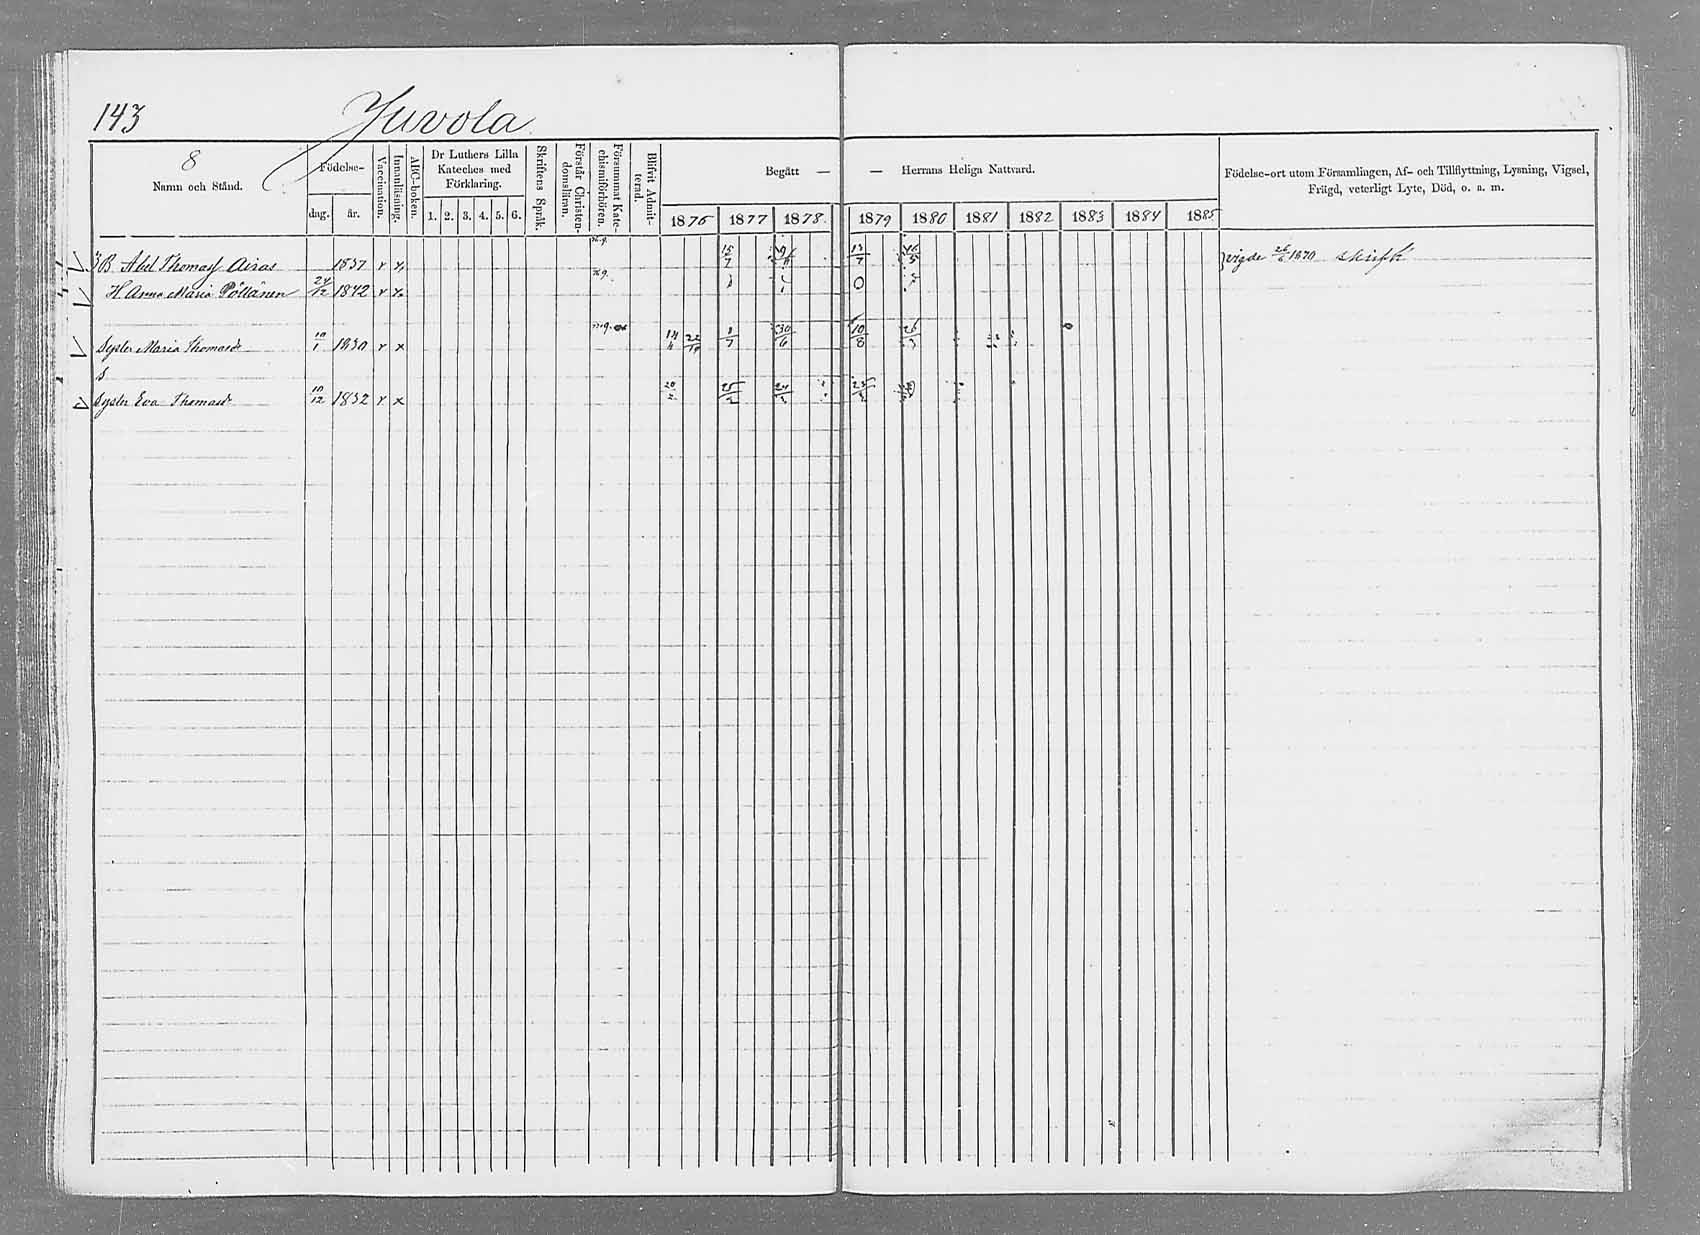 143 Juvola
8
Namn och Stånd.
Födelse-
dag. år.
Vaccination.
Innanläsning.
ABC-boken.
Dr Luthers Lilla
Kateches med
Förklaring.
1. 2. 3. 4. 5. 6.
Skriftens Språk.
Förstår Christen-
domsläran.
Försummat Kate-
chismiförhören.
Blifvit Admit-
terad.
Begått — — Herrans Heliga Nattvard.
1876 1877 1878 1879 1880 1881 1882 1883 1884 1885
Födelse-ort utom Församlingen, Af- och Tillflyttning, Lysning, Vigsel,
Frägd, veterligt Lyte, Död, o. s. m.
B. Abel Thomasf Airas 1837 15/7 13/7 vigde 26/6 1870
H. Anna Maria Pöllänen 24/12 1842
Syster Maria Thomasd. 10/1 1830 30/6 10/8
Syster Eva Thomasd. 10/12 1832